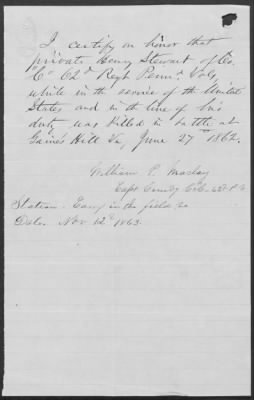 I certify on honor that
private Henry Stewart of Co.
"C" 62d Regt Penna Vols,
while in the service of the United
States and in the line of his
duty was killed in battle at
Gaines Hill Va, June 27th 1862.
William P. Maclay
Capt Comdg Co C. 62 P V
Station Camp in the field Va
Date. Nov 12th 1863.